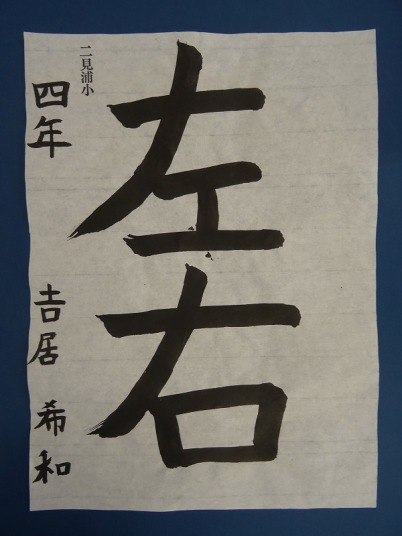 左右
二見浦小
四年 吉居 希和